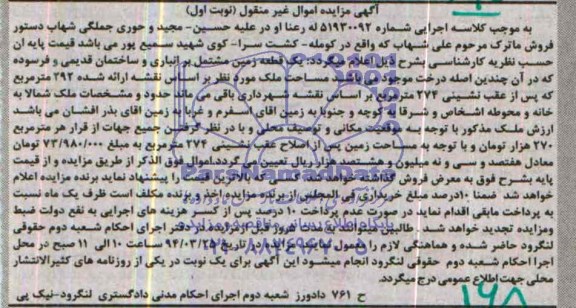 آگهی مزایده اموال غیر منقول (نوبت اول)
به موجب کلاسه اجرایی شماره 5193092 له رعنا او در علیه حسین- مجید و حوری جملگی شهاب دستور
فروش ماترک مرحوم علی شهاب که واقع در کومله- کشت سرا- کوی شهید سمیع پور می باشد قیمت پایه ان
حسب نظریه کارشناسی بشرح ذیل اعلام میگردد: یک قطعه زمین مشتمل بر انباری و ساختمان قدیمی و فرسوده
که در آن چندین اصله درخت موجود می باشد. مساحت ملک مورد نظر بر اساس نقشه ارائه شده 292 مترمربع
که پس از عقب نشینی 274 مترمربع بر اساس نقشه شهرداری باقی می ماند حدود و مشخصات ملک شمالا به
خانه و محوطه اشخاص و شرقا به کوچه و جنوبا به زمین اقای اسفرم و غربا به زمین اقای بذر افشان می باشد
ارزش ملک مذکور با توجه به موقعیت مکانی و توصیف محلی و با در نظر گرفتن جمیع جهات از قرار هر مترمربع
270 هزار تومان و با توجه به مساحت زمین پس از اصلاح عقب نشینی 274 مترمربع به مبلغ 73/980/000 تومان
معادل هفتصد و سی و نه میلیون و هشتصد هزار ریال تعیین می گردد.اموال فوق الذکر از طریق مزایده و از قیمت
پایه بشرح فوق به معرض فروش گذاشته خواهد شد. کسی که بالاترین قیمت را پیشنهاد نماید برنده مزایده اعلام
خواهد شد ضمنا 10درصد مبلغ خریداری فی المجلس از برنده مزایده اخذ و برنده مکلف است ظرف یک ماه نسبت
به پرداخت مابقی اقدام نماید در صورت عدم پرداخت 10 درصد پس از کسر هزینه های اجرایی به نفع دولت ضبط
ومزایده تجدید خواهد شد. طالبین می توانند همه روزه قبل از مزایده در دفتر اجرای احکام شعبه دوم حقوقی
لنگرود حاضر شده و هماهنگی لازم را معمول نمایند. مزایده در تاریخ 94/03/25 ساعت 10 الی 11 صبح در محل
اجرا احکام شعبه دوم حقوقی لنگرود انجام میشود این آگهی برای یک نوبت در یکی از روزنامه های کثیرالانتشار
محلی جهت اطلاع عمومی درج میگردد.
ح 761 دادورز شعبه دوم اجرای احکام مدنی دادگستری لنگرود-نیک پی
168